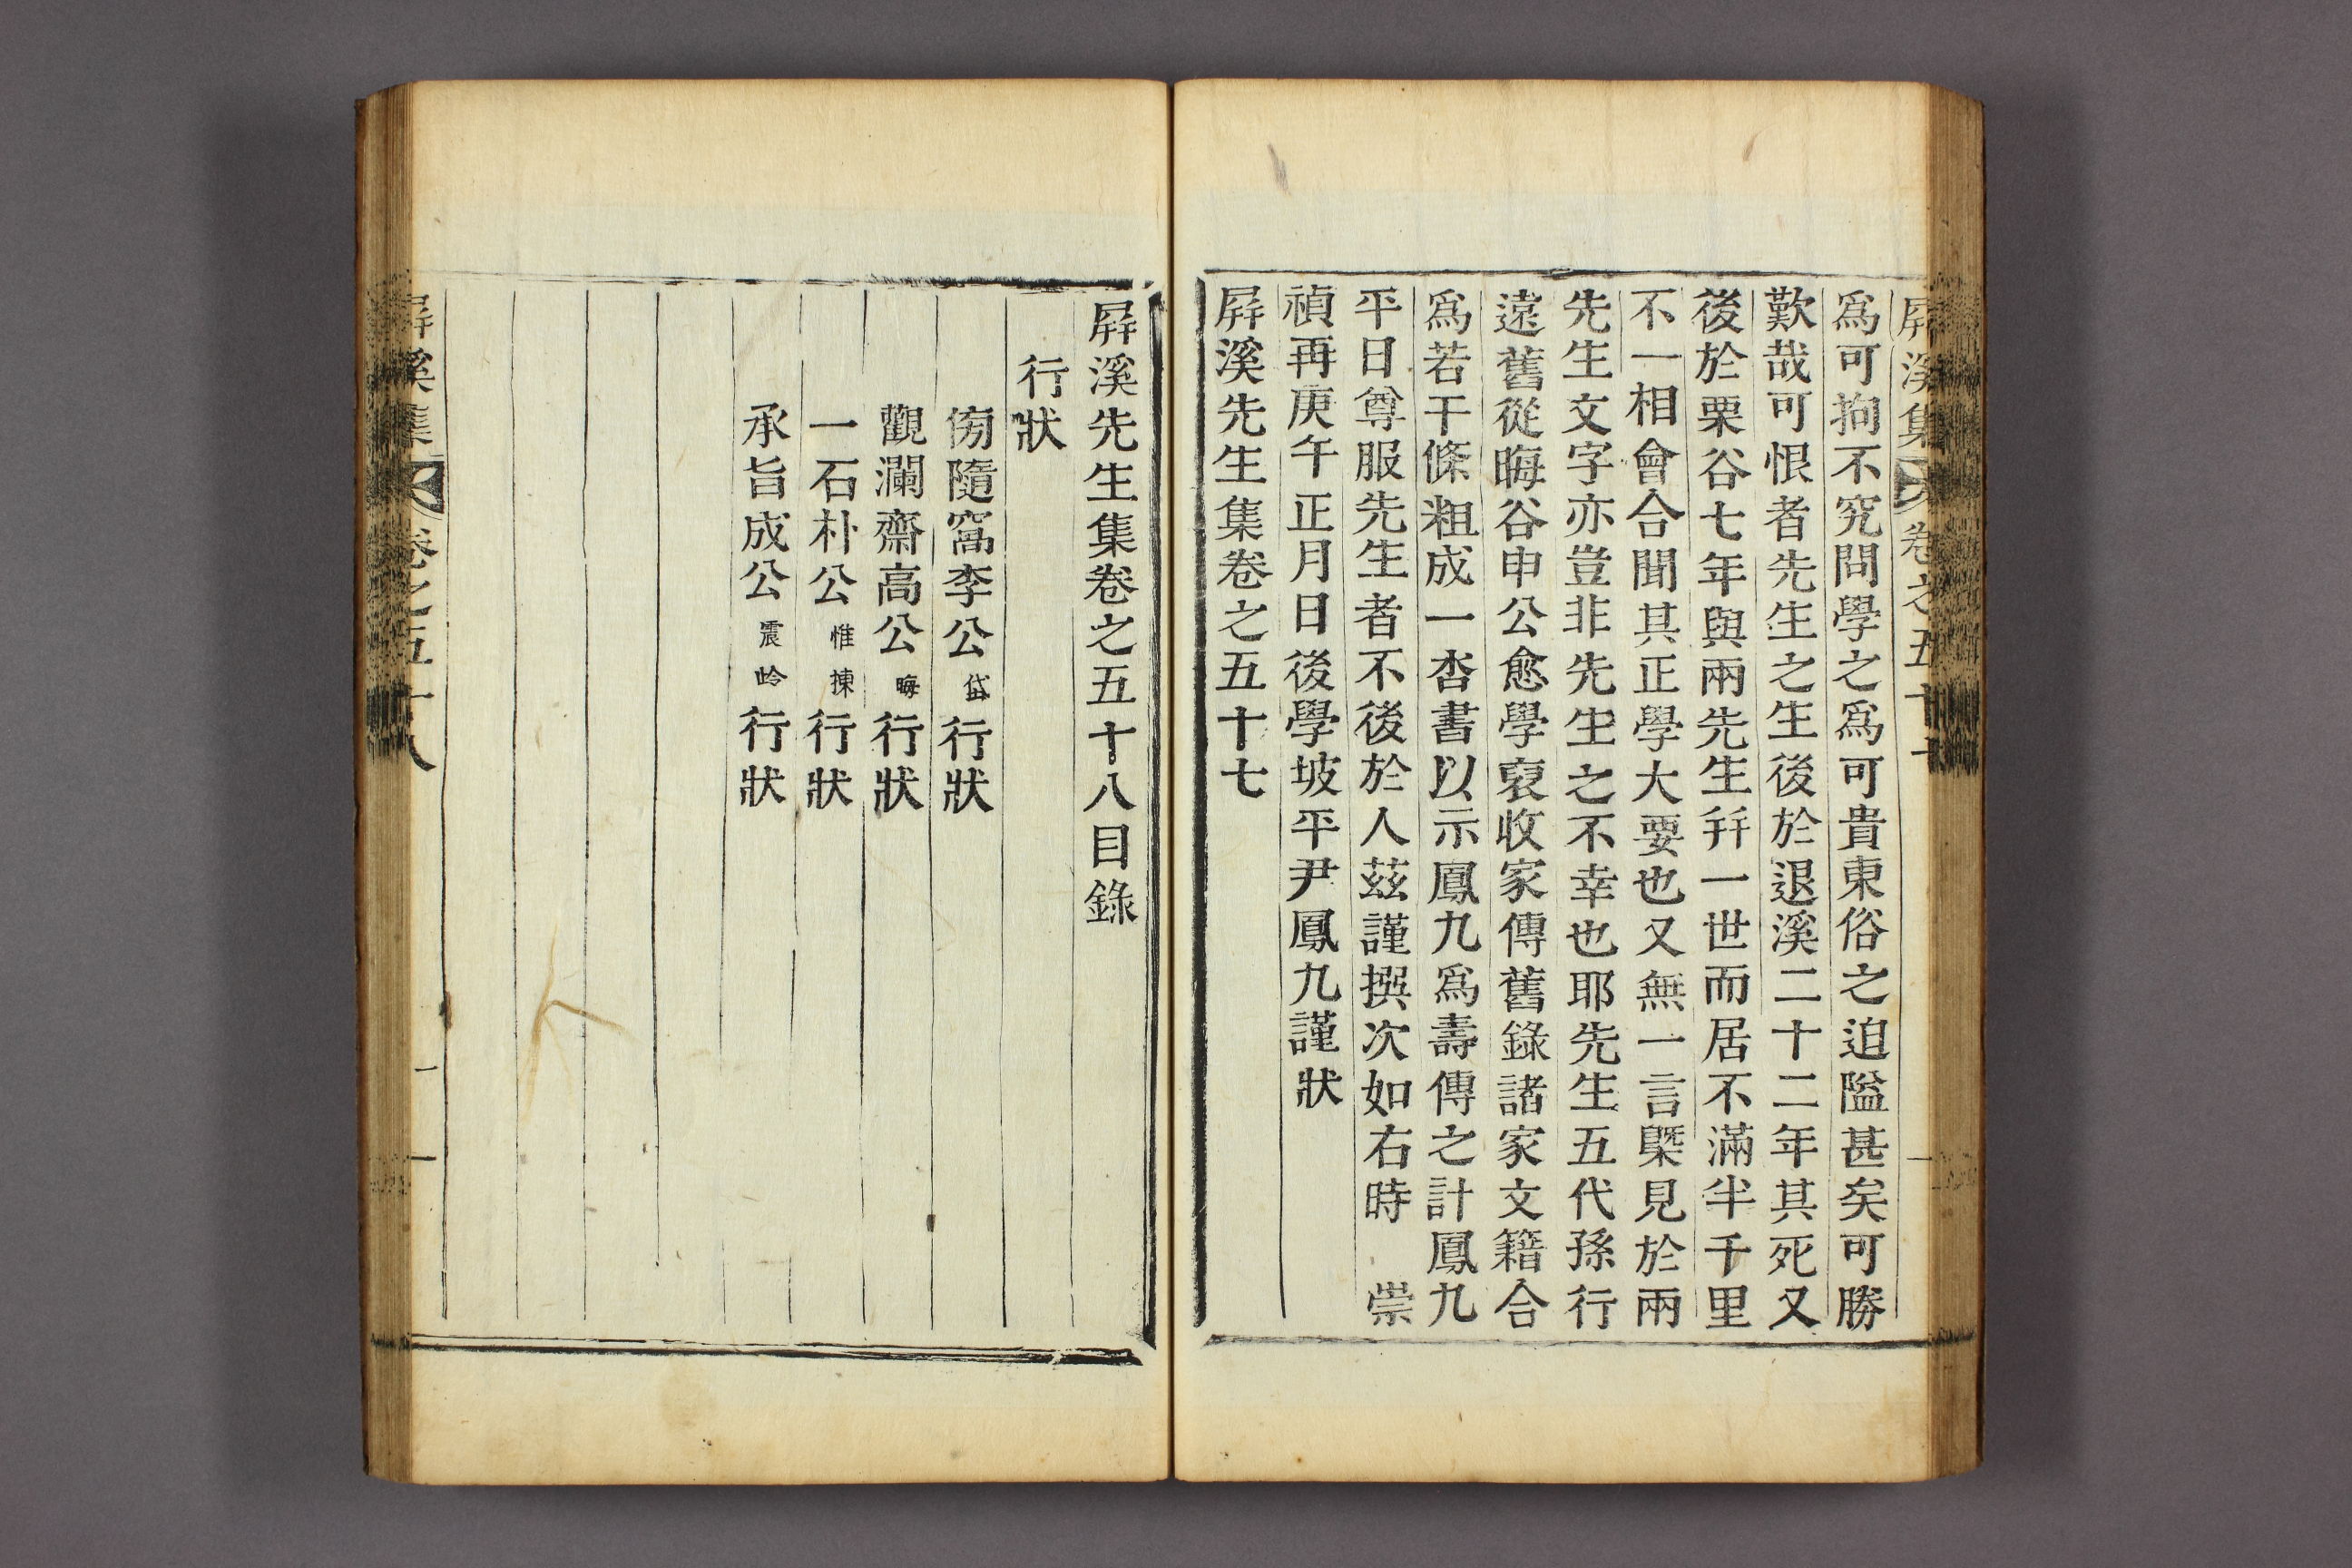 屛溪集 卷之五十七
爲可拘不究問學之爲可貴東俗之迫隘甚矣可勝
歎哉可恨者先生之生後於退溪二十二年其死又
後於栗谷七年與兩先生幷一世而居不滿半千里
不一相會合聞其正學大要也又無一言槩見於兩
先生文字亦豈非先生之不幸也耶先生五代孫行
遠舊從晦谷申公愈學裒收家傳舊錄諸家文籍合
爲若干條粗成一沓書以示鳳九爲壽傳之計鳳九
平日尊服先生者不後於人茲謹撰次如右時 崇
禎再庚午正月日後學坡平尹鳳九謹狀
屛溪先生集卷之五十七
屛溪先生集卷之五十八目錄
行狀
傍隨窩李公岱行狀
觀瀾齋高公晦行狀
一石朴公惟棟行狀
承旨成公震岭行狀
屛溪集 卷之五十八 一